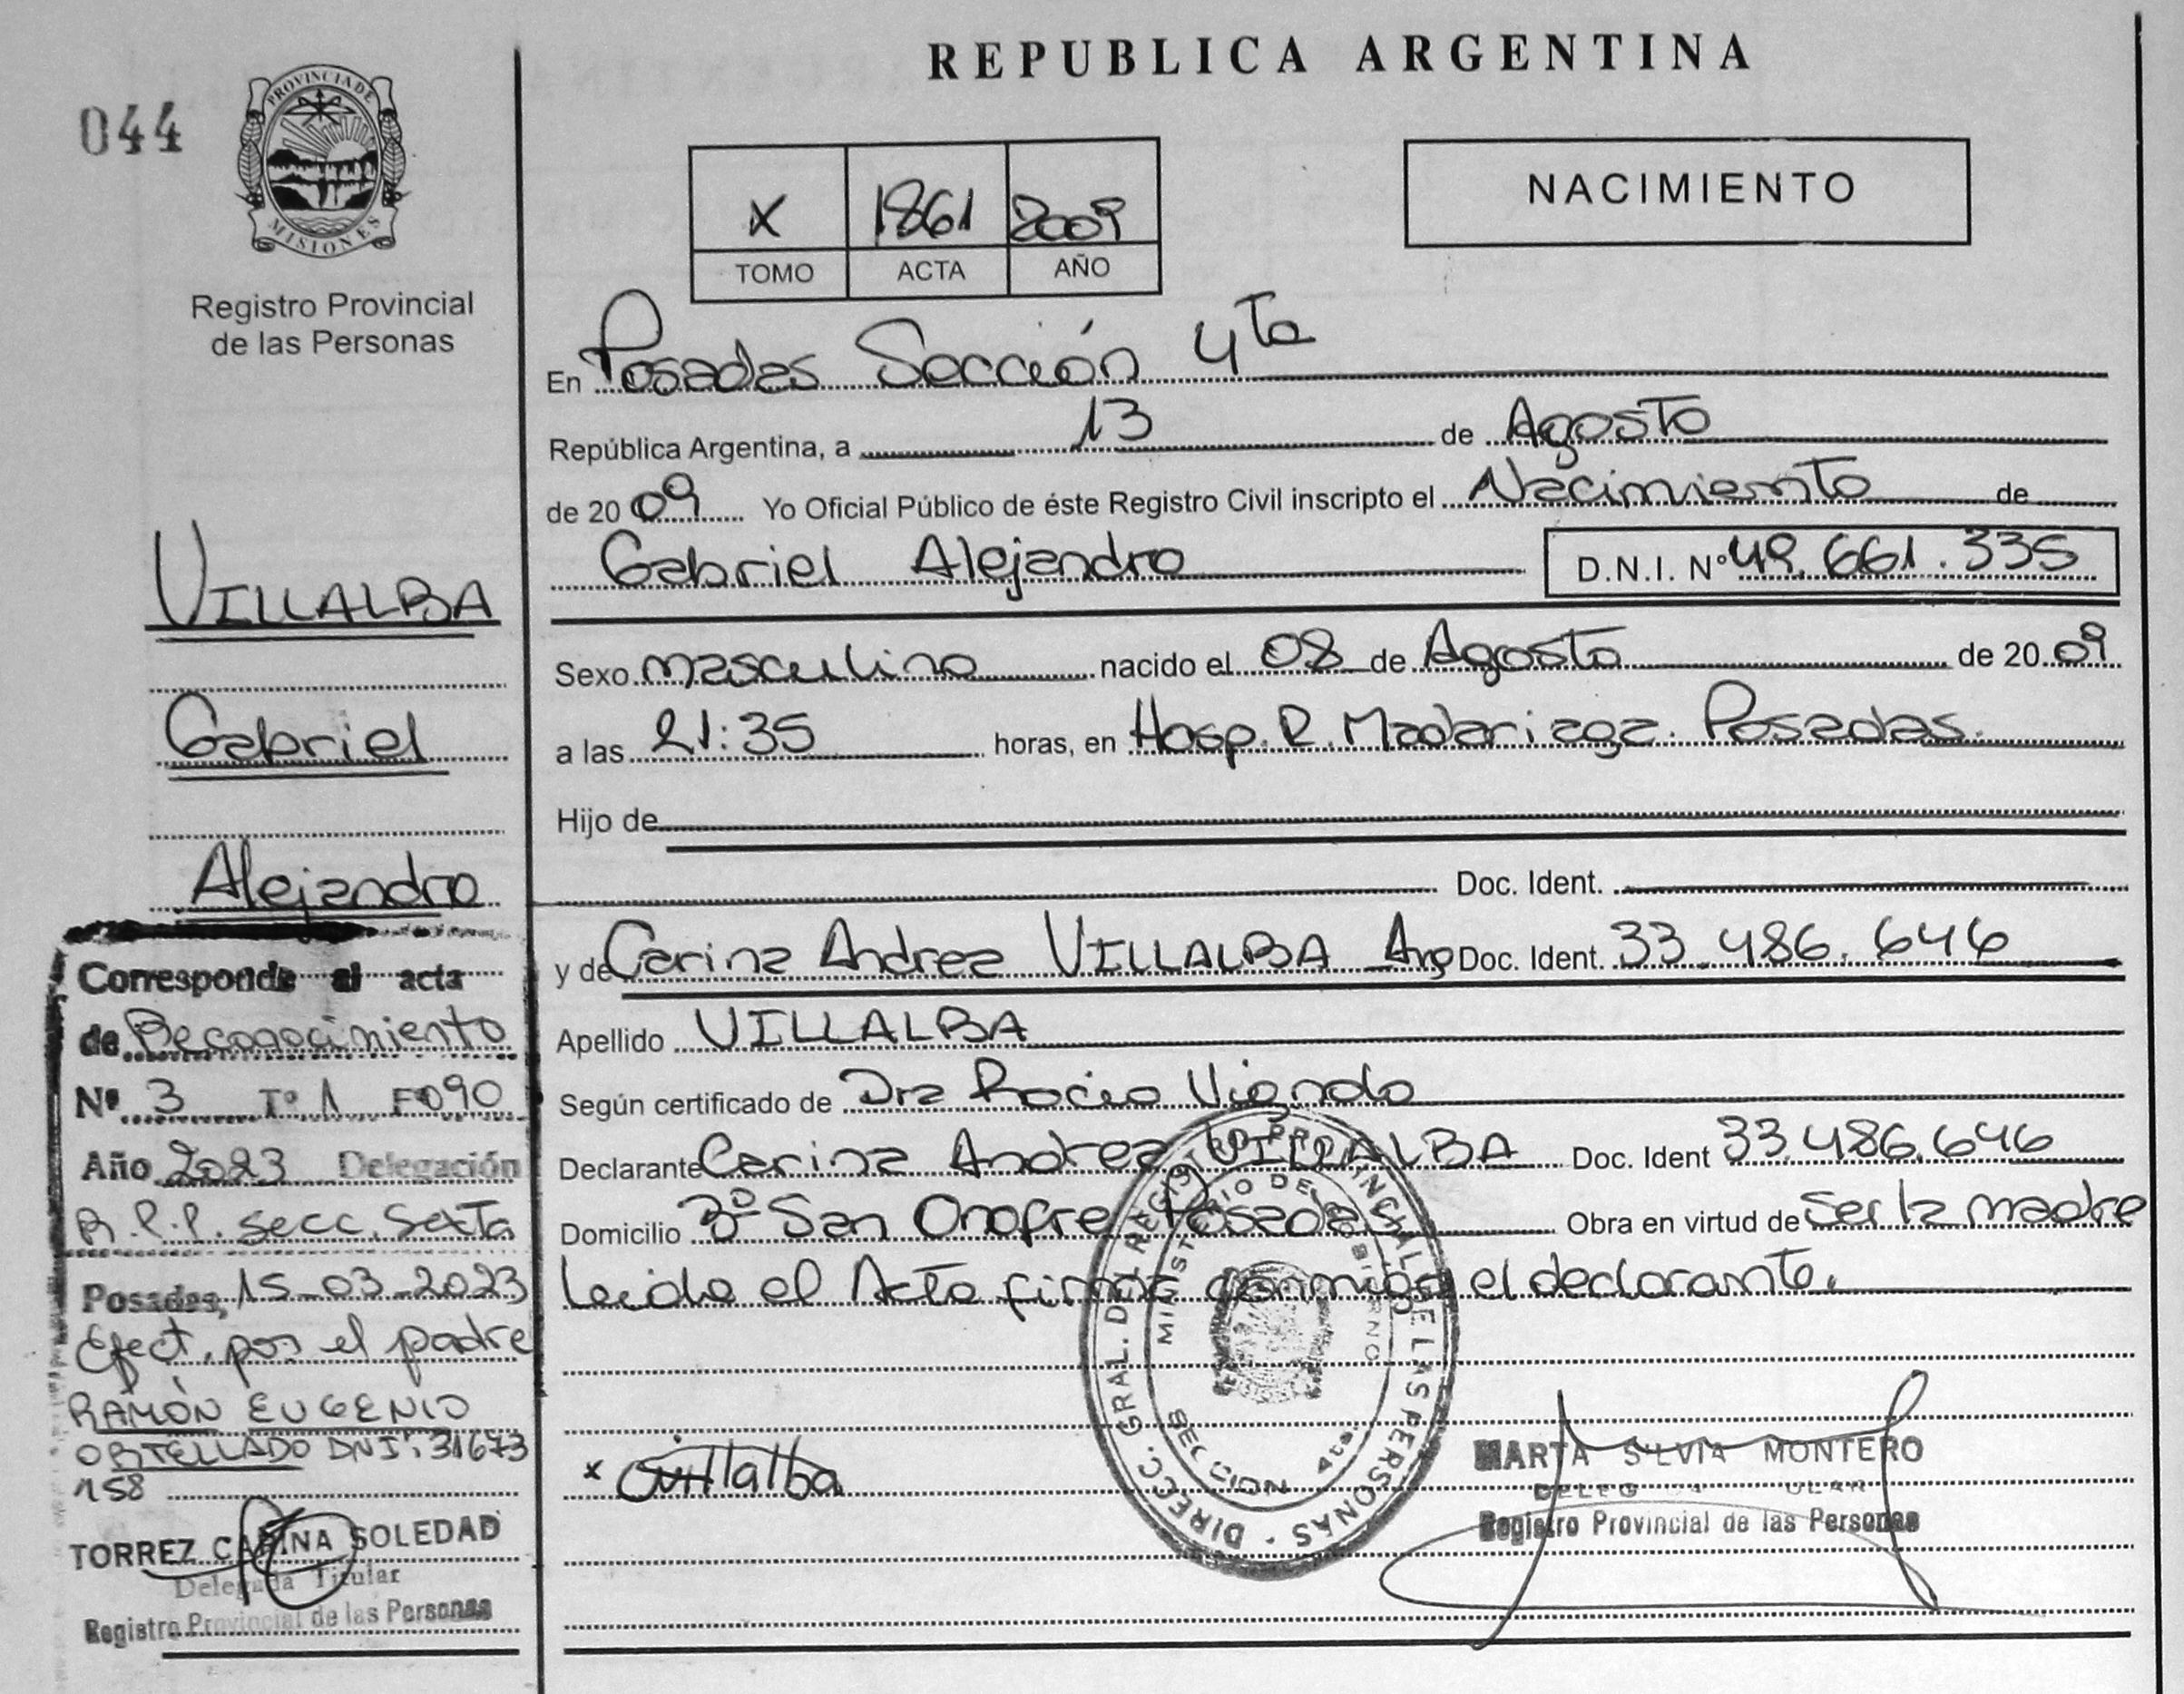 REPUBLICA ARGENTINA
044
PROVINCIA DE
MISIONES
Registro Provincial
de las Personas
NACIMIENTO
X 1861 2009
TOMO ACTA AÑO
En Posadas Sección 4ta
República Argentina, a 13 de Agosto
de 2009 Yo Oficial Público de éste Registro Civil inscripto el Nacimiento de
Gabriel Alejandro D.N.I. Nº 49.661.335
Sexo masculino nacido el 08 de Agosto de 2009
a las 21:35 horas, en Hosp. R. Madariaga. Posadas.
Hijo de
Doc. Ident.
y de Carina Andrea VILLALBA Arg Doc. Ident. 33.486.646
Apellido VILLALBA
Según certificado de Dra Rocio
Declarante Carina Andrea VILLALBA Doc. Ident 33.486.646
Domicilio Bº San Onofre Posadas Obra en virtud de ser la madre
Leida el Acta firma conmigo el declarante.
x Villalba
DIRECC. GRAL. DEL REGISTRO PROVINCIAL DE LAS PERSONAS
MINISTERIO DE GOBIERNO
SECCION 4ta.
MARTA SILVIA MONTERO
Registro Provincial de las Personas
VILLALBA
Gabriel
Alejandro
Corresponde al acta
de Reconocimiento
Nº 3 Tº 1 Fº 090
Año 2023 Delegación
R.P.P. Secc. Sexta
Posadas, 15-03-2023
Efect. por el padre
RAMÓN EUGENIO
ORTELLADO DNI: 31673
158
TORREZ CARINA SOLEDAD
Delegada Titular
Registro Provincial de las Personas